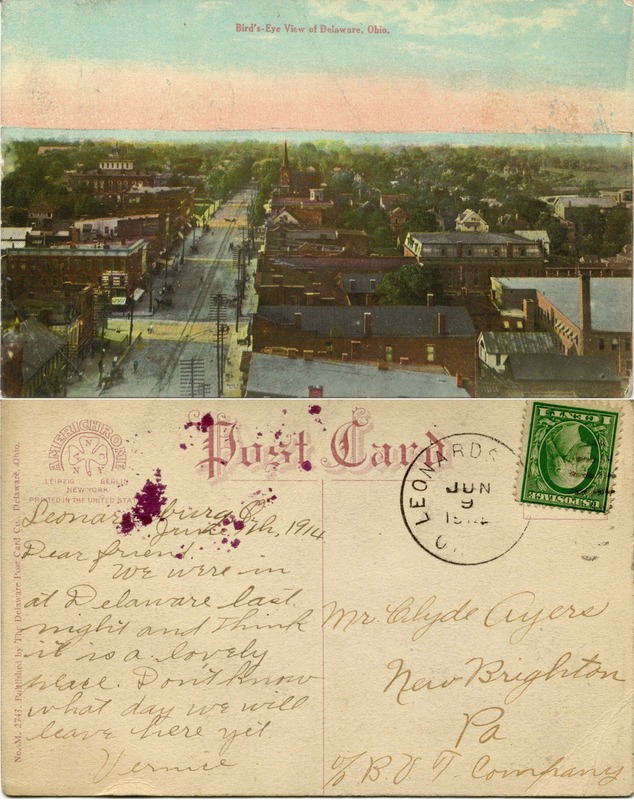 Bird's-Eye View of Delaware, Ohio.
Post Card
AMERICHROME
LEIPZIG BERLIN
NEW YORK
PRINTED IN THE UNITED STATES
No. M. 2743. Published by The Delaware Post Card Co., Delaware, Ohio.
LEONARDS
JUN
9
O.
1 CENT 1
U.S. POSTAGE
Leonardsburg O.
June 9th, 1914
Dear friend
We were in
at Delaware last
night and think
it is a lovely
place. Don't know
what day we will
leave here yet
Vernice
Mr. Clyde Ayers
New Brighton
Pa
c/o B V T. Company